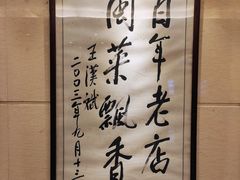 百年老店
闽菜飘香
王汉斌
二〇〇三年九月十三